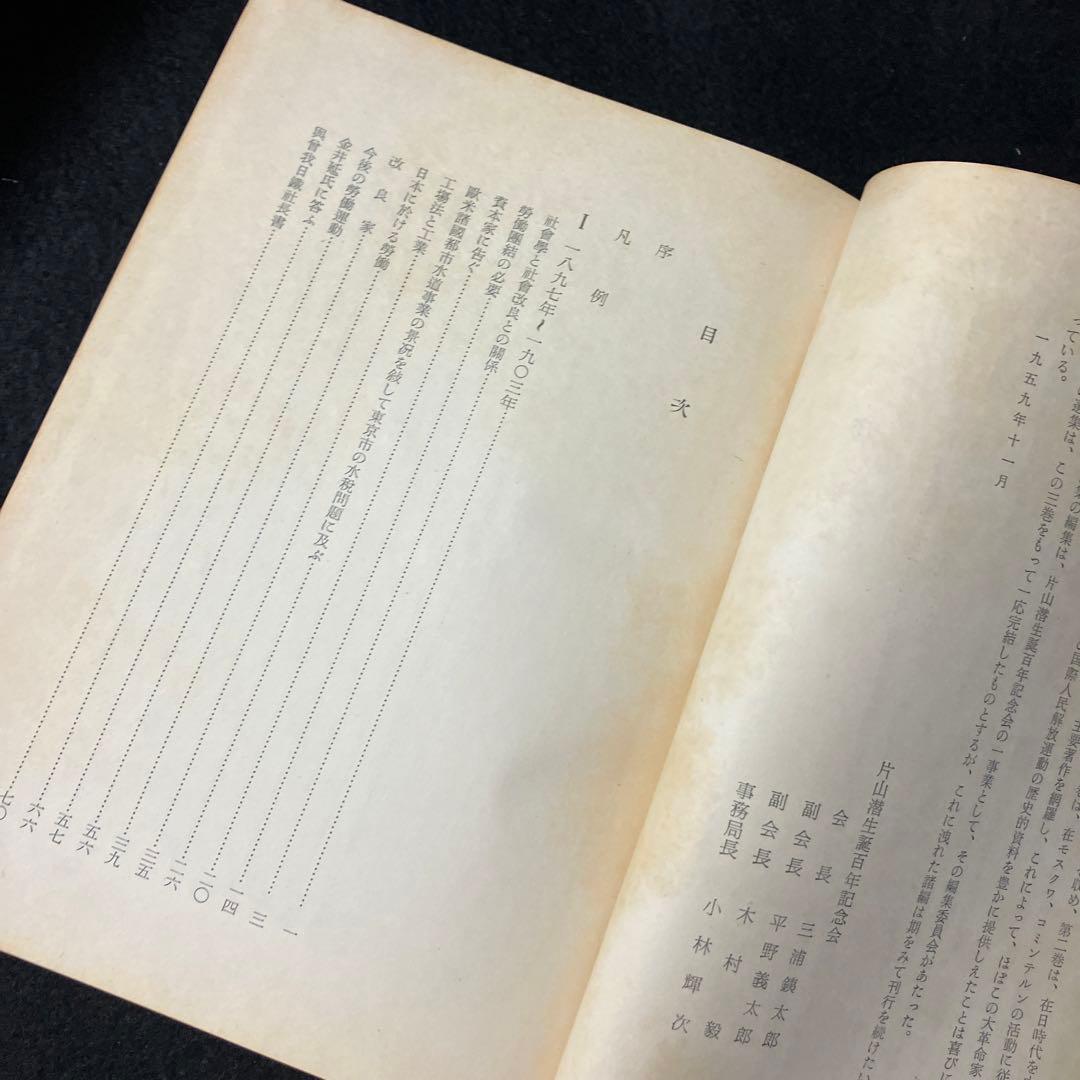 を収め、第二巻は、在日時代を
は、在モスクワ、コミンテルンの活動に従
主要著作を網羅し、これによって、ほぼこの大革命家
国際人民解放運動の歴史的資料を豊かに提供しえたことは喜びに
集の編集は、片山潜生誕百年記念会の一事業として、その編集委員会があたった。
選集は、この三巻をもって一応完結したものとするが、これに洩れた諸編は期をみて刊行を続けたい
っている。
一九五九年十一月
片山潜生誕百年記念会
会長 三浦銕太郎
副会長 平野義太郎
副会長 木村毅
事務局長 小林輝次
目次
序
凡例
I 一八九七年~一九〇三年 一
社會學と社會改良との關係 三
勞働團結の必要 一四
資本家に告ぐ 二〇
歐米諸國都市水道事業の景况を敍して東京市の水税問題に及ぶ 二六
工場法と工業 三五
日本に於ける勞働 三九
改良家 五六
今後の勞働運動 五七
金井延氏に答ふ 六六
與曾我日鐵社長書 七〇